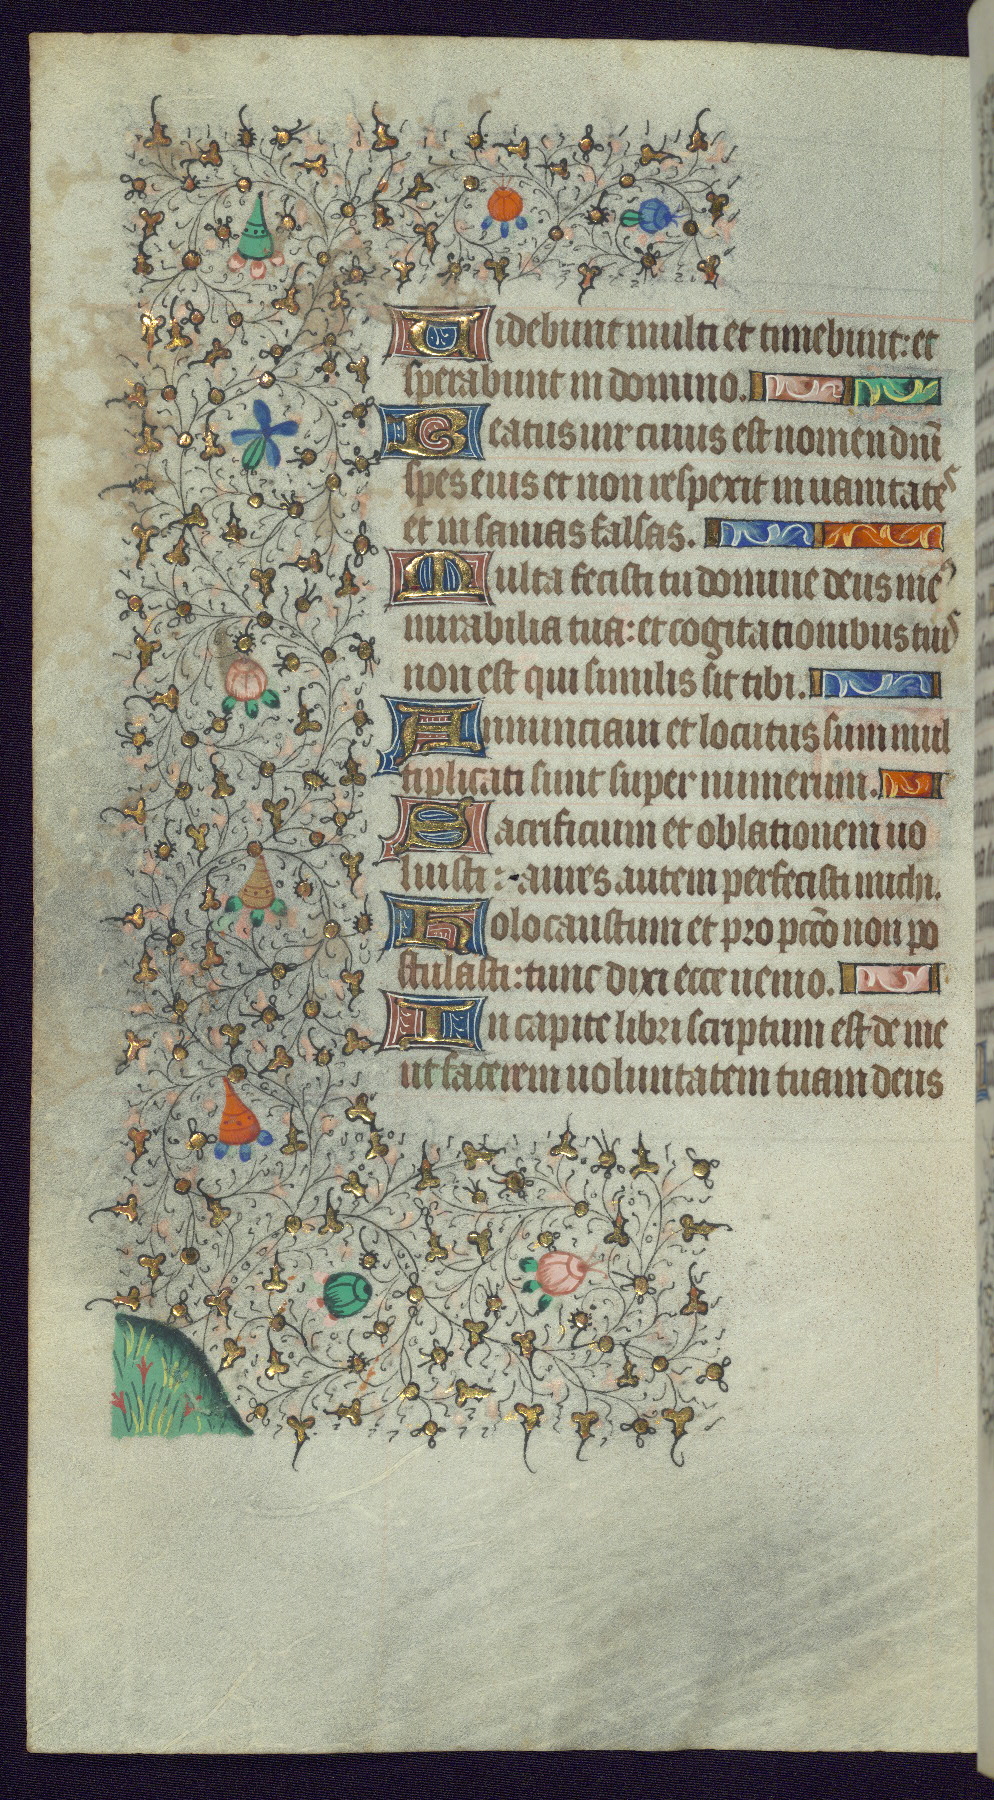 Uidebunt multi et timebunt: et
sperabunt in domino.
Beatus uir cuius est nomen dn̄i
spes eius et non respexit in uanitates
et insanias falsas.
Multa fecisti tu domine deus me9
mirabilia tua: et cogitationibus tuis
non est qui similis sit tibi.
Annunciaui et locutus sum mul
tiplicati sunt super numerum.
Sacrificium et oblationem no
luisti: aures autem perfecisti michi.
Holocaustum et pro pcc̄o non po
stulasti: tunc dixi ecce uenio.
In capite libri scriptum est de me
ut facerem uoluntatem tuam deus